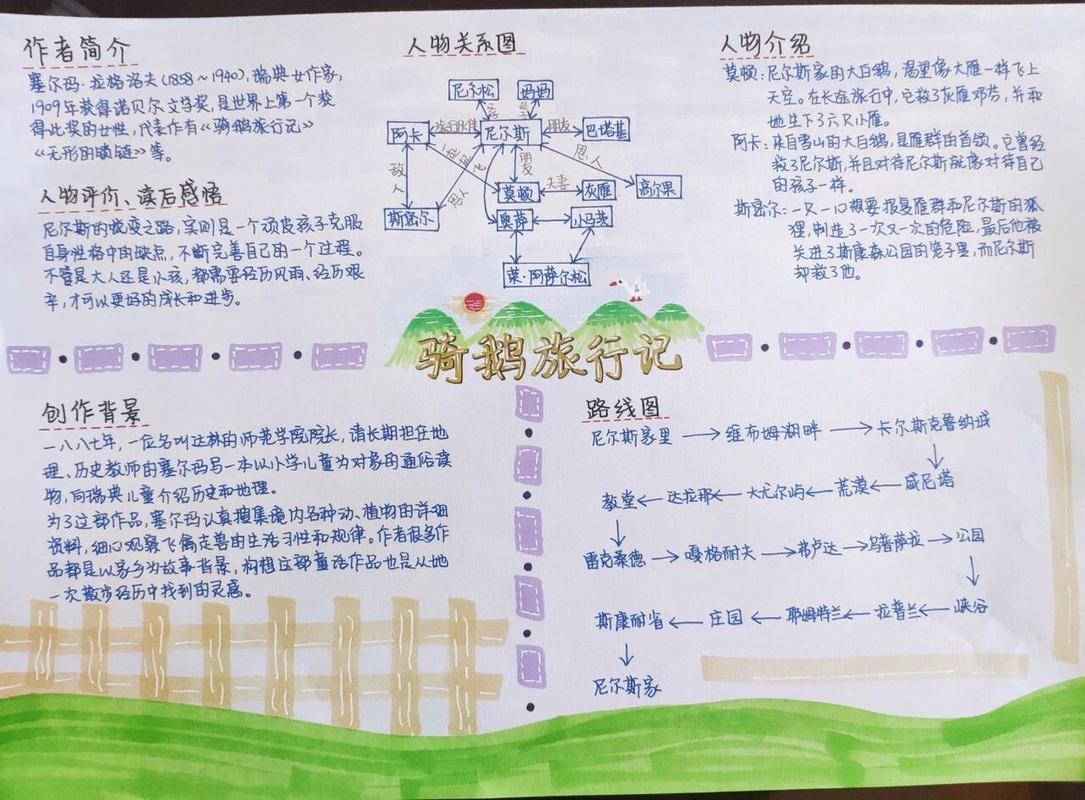 作者简介
塞尔玛·拉格洛夫(1858～1940),瑞典女作家,
1909年获得诺贝尔文学奖,是世界上第一个获
得此奖的女性,代表作有《骑鹅旅行记》
《无形的锁链》等。
人物评价、读后感悟
尼尔斯的蜕变之路,实则是一个顽皮孩子克服
自身性格中的缺点,不断完善自己的一个过程。
不管是大人还是小孩,都需要经历风雨、经历艰
辛,才可以更好的成长和进步。
人物关系图
尼尔松
妈妈
阿卡
旅行伙伴
尼尔斯
朋友
巴塔基
敌人
恩人
朋友
恩人
莫顿
夫妻
灰雁
高尔果
斯密尔
奥萨
小马茨
莱·阿萨尔松
人物介绍
莫顿:尼尔斯家的大白鹅,渴望像大雁一样飞上
天空。在长途旅行中,它救了灰雁邓芬,并和
她生下了六只小雁。
阿卡:来自雪山的大白鹅,是雁群的首领。它曾经
救了尼尔斯,并且对待尼尔斯就像对待自己
的孩子一样。
斯密尔:一只一心想要报复雁群和尼尔斯的狐
狸,制造了一次又一次的危险,最后他被
关进了斯康森公园的笼子里,而尼尔斯
却救了他。
骑鹅旅行记
创作背景
一八八七年,一位名叫达林的师范学院院长,请长期担任地
理、历史教师的塞尔玛写一本以小学儿童为对象的通俗读
物,向瑞典儿童介绍历史和地理。
为了这部作品,塞尔玛认真搜集境内各种动、植物的详细
资料,细心观察飞禽走兽由生活习性和规律。作者很多作
品都是以家乡为故事背景,构想这部童话作品也是从她
一次散步经历中找到的灵感。
路线图
尼尔斯家里→维布姆湖畔→卡尔斯克鲁纳城
教堂←达拉那←大尤尔屿←荒漠←威尼塔
雷克桑德→嘎格耐夫→弗卢达→乌普萨拉→公园
斯康耐省←庄园←耶姆特兰←拉普兰←峡谷
尼尔斯家